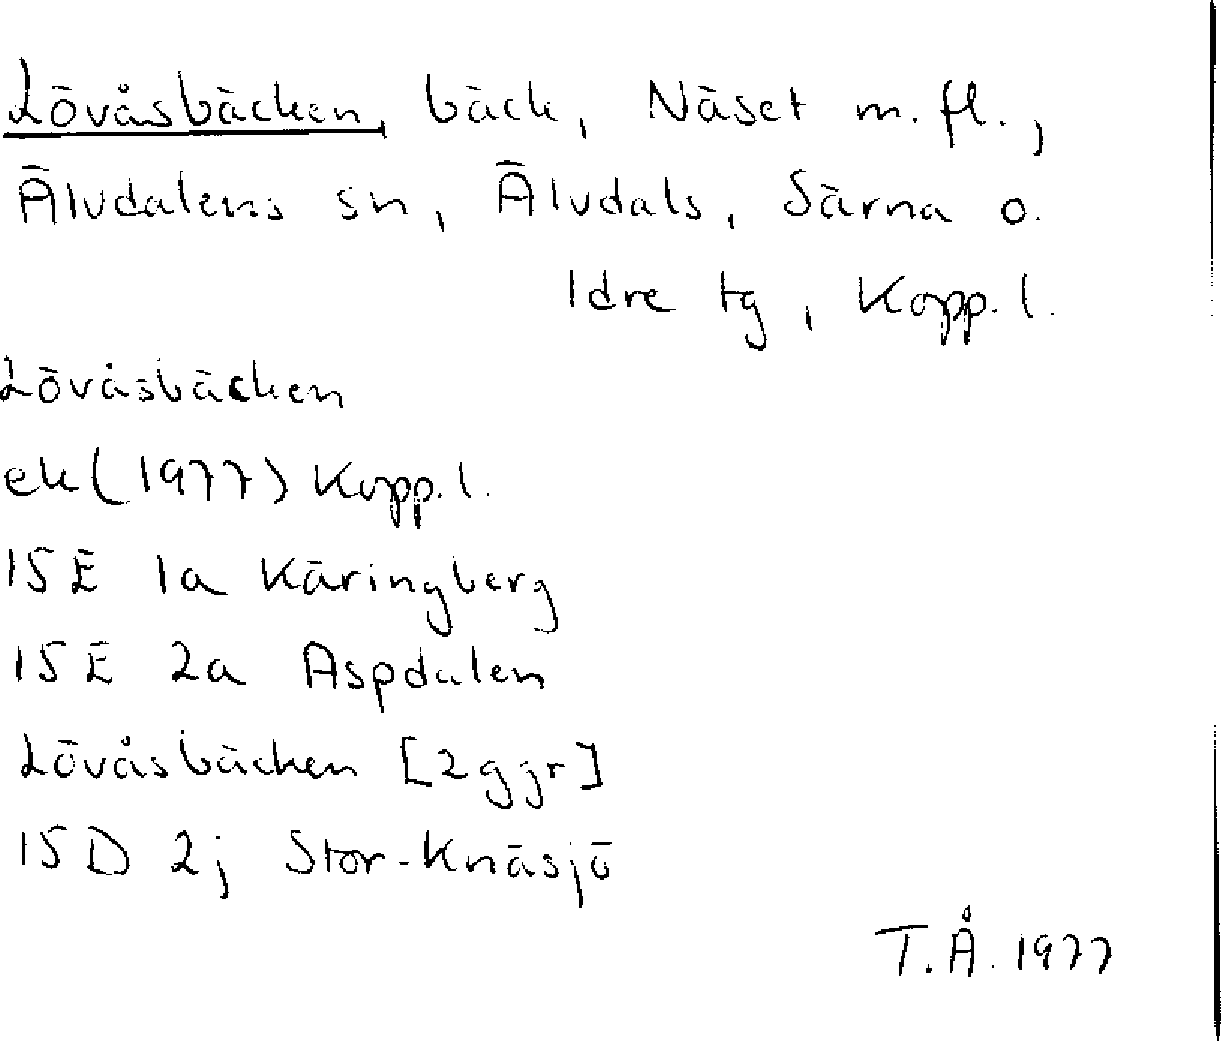 Lövåsbäcken, bäck, Näset m.fl.,
Älvdalens sn, Älvdals, Särna o.
Idre tg, Kopp.l.
Lövåsbäcken
ek(1977) Kopp.l.
15E 1a Käringberg
15E 2a Aspdalen
Lövåsbäcken [2ggr]
15D 2j Stor-Knäsjö
T.Å. 1977